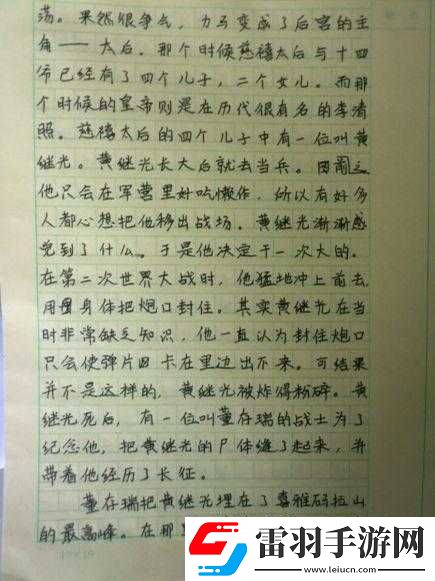 荡。果然很争气，立马变成了后宫的主
角——太后。那个时候慈禧太后与十四
帝已经有了四个儿子，二个女儿。而那
个时候的皇帝则是在历代很有名的李清
照。慈禧太后的四个儿子中有一位叫黄
继光。黄继光长大后就去当兵。因
他只会在军营里好吃懒作，所以有好多
人都心想把他移出战场。黄继光渐渐感
觉到了什么。于是他决定干一次大的。
在第二次世界大战时，他猛地冲上前去，
用身体把炮口封住。其实黄继光在当
时非常缺乏知识，他一直认为封住炮口
只会使弹片卡在里边出不来。可结果
并不是这样的，黄继光被炸得粉碎。黄
继光死后，有一位叫董存瑞的战士为了
纪念他，把黄继光的尸体缝了起来，并
带着他经历了长征。
董存瑞把黄继光埋在了喜雅码拉山
的最高峰。在那
雷羽手游网
www.leiucn.com